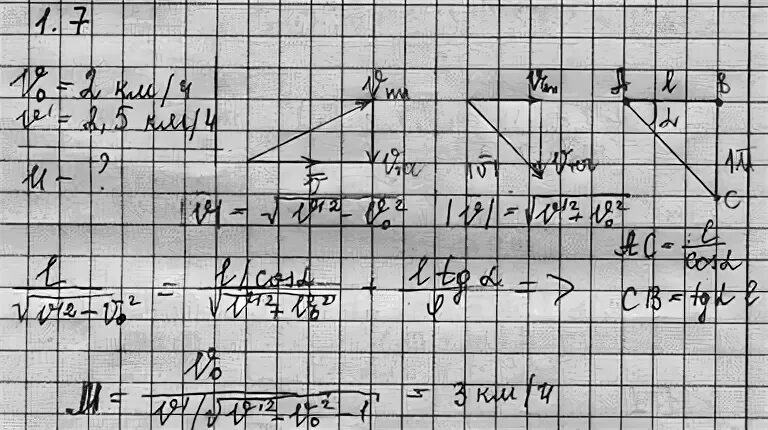 1.7
v₀ = 2 км/ч
v' = 2,5 км/ч
u - ?
A l B
α
|v̄|
C
|v| = √(v'² - v₀²) |v| = √(v'² + v₀²)
AC = l/cosα
CB = tgα l
l/√(v'² - v₀²) = (l/cosα)/√(v'² + v₀²) + l tgα / =>
u = v₀/(v'/√(v'² - v₀²) - 1) = 3 км/ч